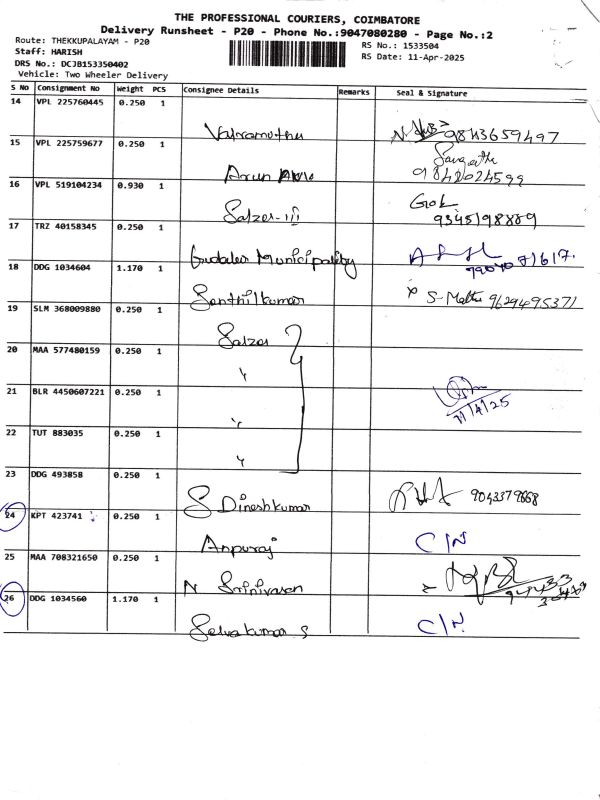 THE PROFESSIONAL COURIERS, COIMBATORE
Delivery Runsheet - P20 - Phone No.:9047080280 - Page No.:2
Route: THEKKUPALAYAM - P20
RS No.: 1533504
Staff: HARISH
RS Date: 11-Apr-2025
DRS No.: DCJB153350402
Vehicle: Two Wheeler Delivery
S No Consignment No Weight PCS Consignee Details Remarks Seal & Signature
14 VPL 225760445 0.250 1
Valramuthu 9843659497
15 VPL 225759677 0.250 1
Arun
Sangeetha
9842024599
16 VPL 519104234 0.930 1
Salzer-III
Gok
9345198889
17 TRZ 40158345 0.250 1
Gudalur Municipality
18 DDG 1034604 1.170 1
Senthilkumar S- 9629495371
19 SLM 368009880 0.250 1
Salzer
20 MAA 577480159 0.250 1
"
21 BLR 4450607221 0.250 1
"
11/4/25
22 TUT 883035 0.250 1
"
23 DDG 493858 0.250 1
S Dineshkumar 9043379868
24 KPT 423741 0.250 1
Anpuraj C/N
25 MAA 708321650 0.250 1
N Srinivasan
26 DDG 1034560 1.170 1
Selvakumar S C/N